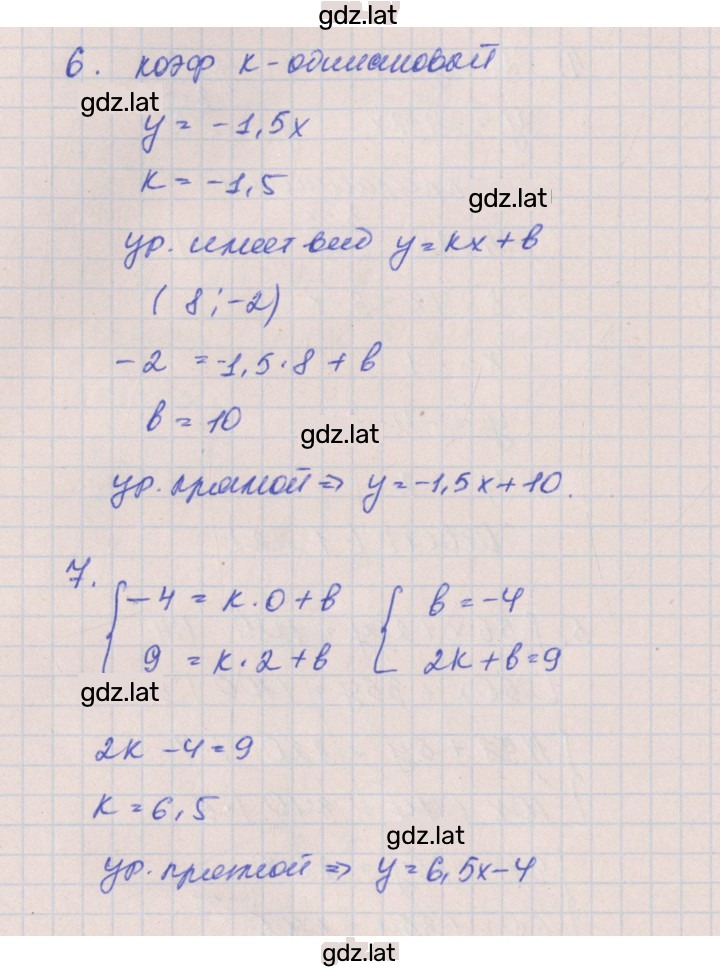 gdz.lat
6. коэф к - одинаковой
gdz.lat
y = -1,5x
к = -1,5
gdz.lat
ур. имеет вид y = кx + в
( 8 ; -2)
-2 = -1,5 · 8 + в
в = 10
gdz.lat
ур. прямой ⇒ y = -1,5x + 10.
7. { -4 = к · 0 + в { в = -4
9 = к · 2 + в 2к + в = 9
gdz.lat
2к - 4 = 9
к = 6,5
gdz.lat
ур. прямой ⇒ y = 6,5x - 4
gdz.lat